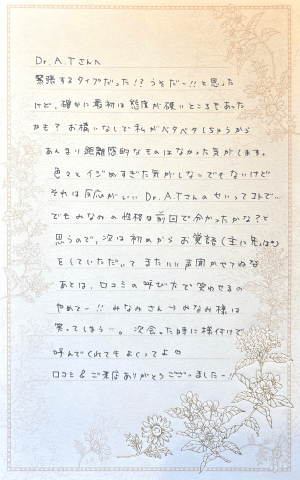 Dr.A.Tさんへ
緊張するタイプだった!? うそだ〜!! と思った
けど、確かに最初は態度が硬いところもあった
かも? お構いなしで私がベタベタしちゃうから
あんまり距離感的なものはなかった気がします。
色々とイジめすぎた気がしないでもないけど
それは反応がいい Dr.A.Tさんのせいってコトで…
でもみなみの性格は前回で分かったかな?と
思うので、次は初めからお覚悟(主に先っぽ)
をしていただいて またいい声聞かせつぬな
あとは、口コミの呼び方で笑わせるの
やめて〜!! みなみさん→みなみ様は
笑ってしまう…。次会った時に様付けで
呼んでくれてもよくってよ♡
口コミ&ご来店ありがとうございました〜!!